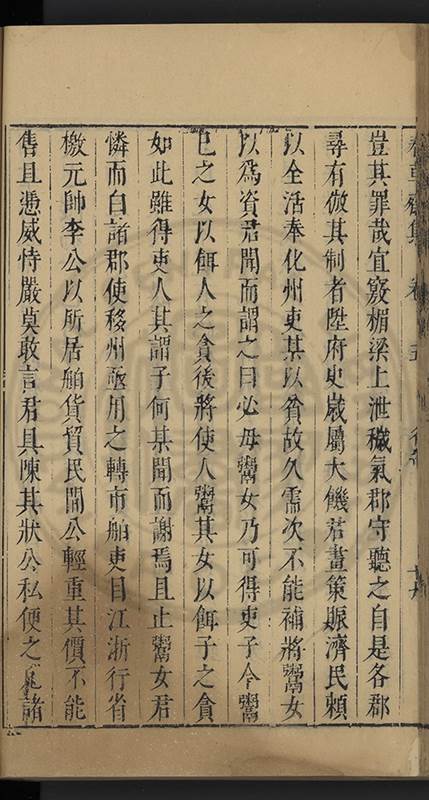 豈其罪哉宜窽楣梁上泄穢氣郡守聽之自是各郡
尋有倣其制者陞府史歲屬大饑君畫策賑濟民頼
以全活奉化州吏某以貧故久需次不能補將鬻女
以爲資君聞而謂之曰必毋鬻女乃可得吏子今鬻
已之女以餌人之貪後將使人鬻其女以餌子之貪
如此雖得吏人其謂子何某聞而謝焉且止鬻女君
憐而白諸郡使移州亟用之轉市舶吏目江浙行省
檄元帥李公以所居舶貨貿民間公輕重其價不能
售且憑威恃嚴莫敢言君具陳其狀公私便之尾諸